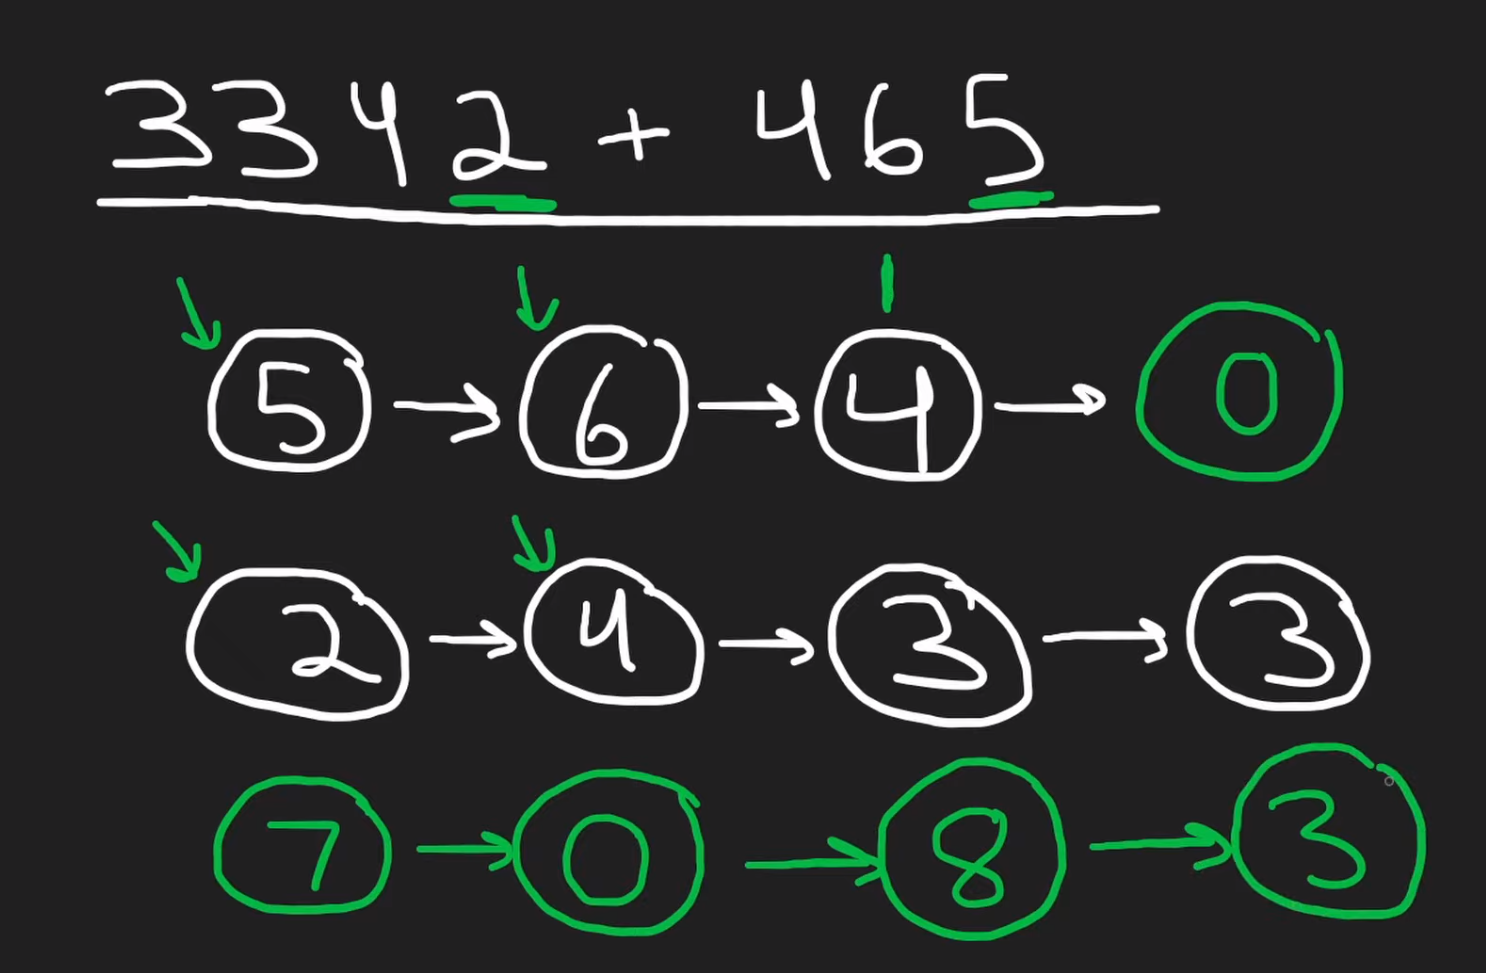 3342 + 465
1
5 → 6 → 4 → 0
2 → 4 → 3 → 3
7 → 0 → 8 → 3